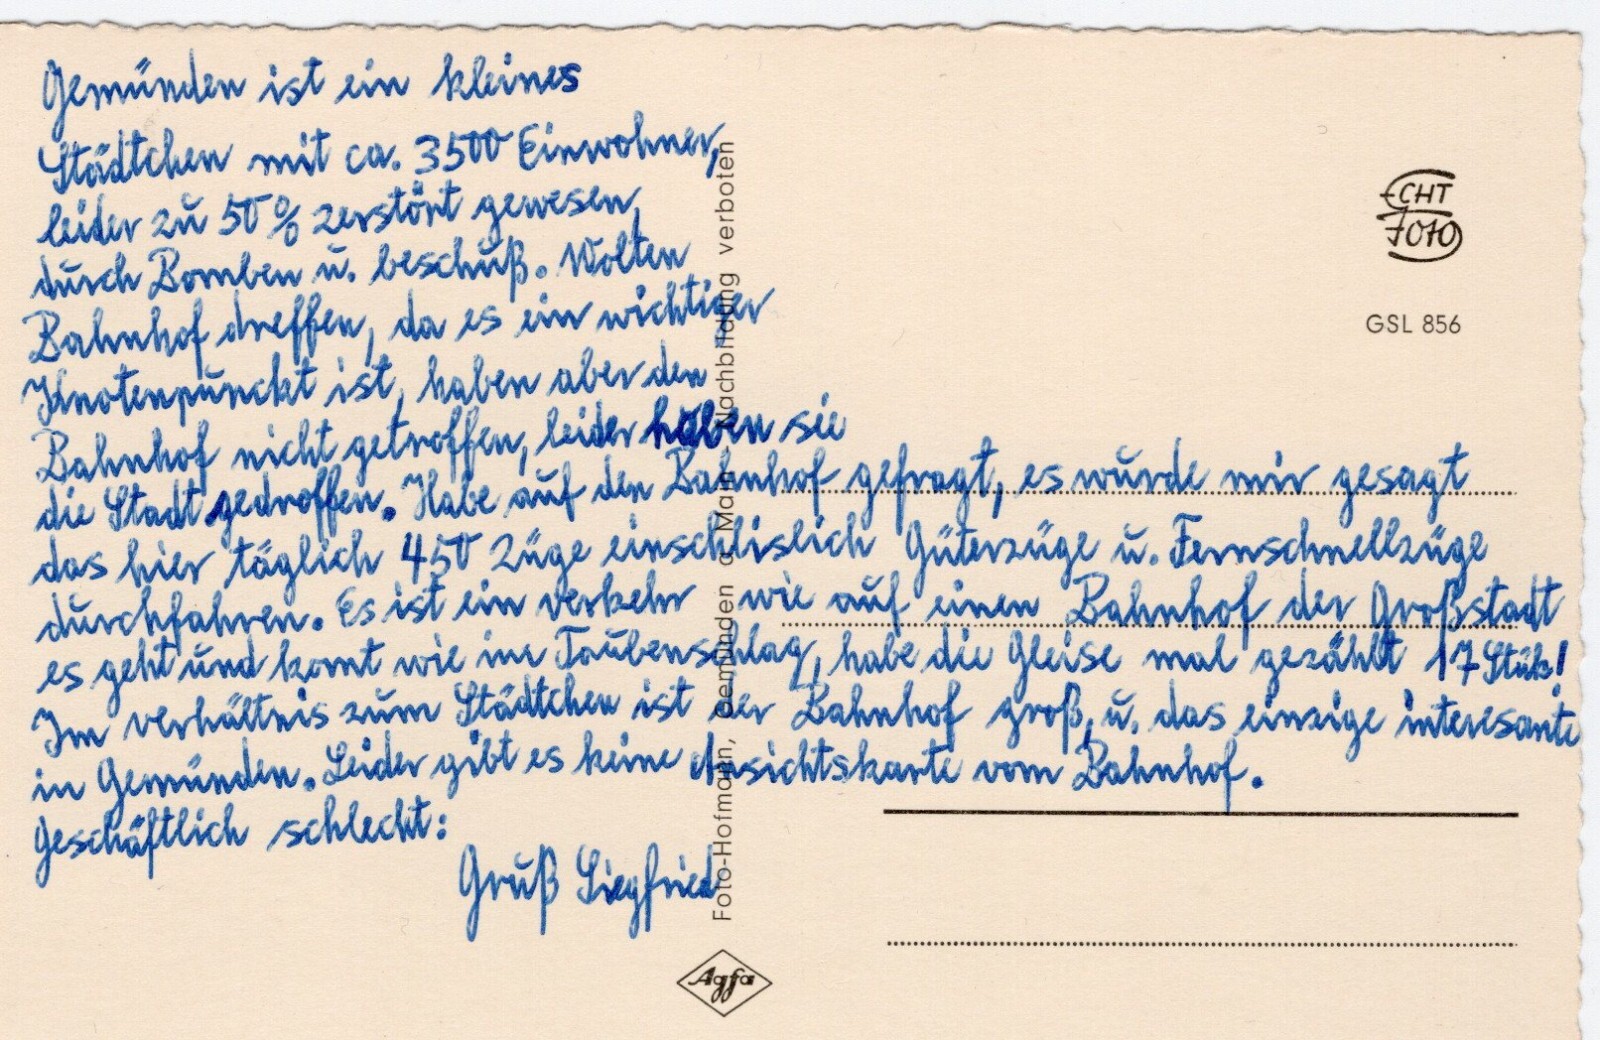 Gemünden ist ein kleines
Städtchen mit ca. 3500 Einwohner,
leider zu 50% zerstört gewesen,
durch Bomben u. beschuß. Wolten
Bahnhof dreffen, da es ein wichtiger
Knotenpunckt ist, haben aber den
Bahnhof nicht getroffen, leider haben sie
die Stadt gedroffen. Habe auf den Bahnhof gefragt, es wurde mir gesagt
das hier täglich 450 Züge einschlislich Güterzüge u. Fernschnellzüge
durchfahren. Es ist ein verkehr wie auf einen Bahnhof der Großstadt
es geht und komt wie im Taubenschlag, habe die Gleise mal gezählt 17 Stük!
Im verhältnis zum Städtchen ist der Bahnhof groß, u. das einzige interesante
in Gemünden. Leider gibt es keine Ansichtskarte vom Bahnhof.
Geschäftlich schlecht:
Gruß Siegfried
Foto-Hofmann, Gemünden a. Main Nachbildung verboten
ECHT
FOTO
GSL 856
Agfa